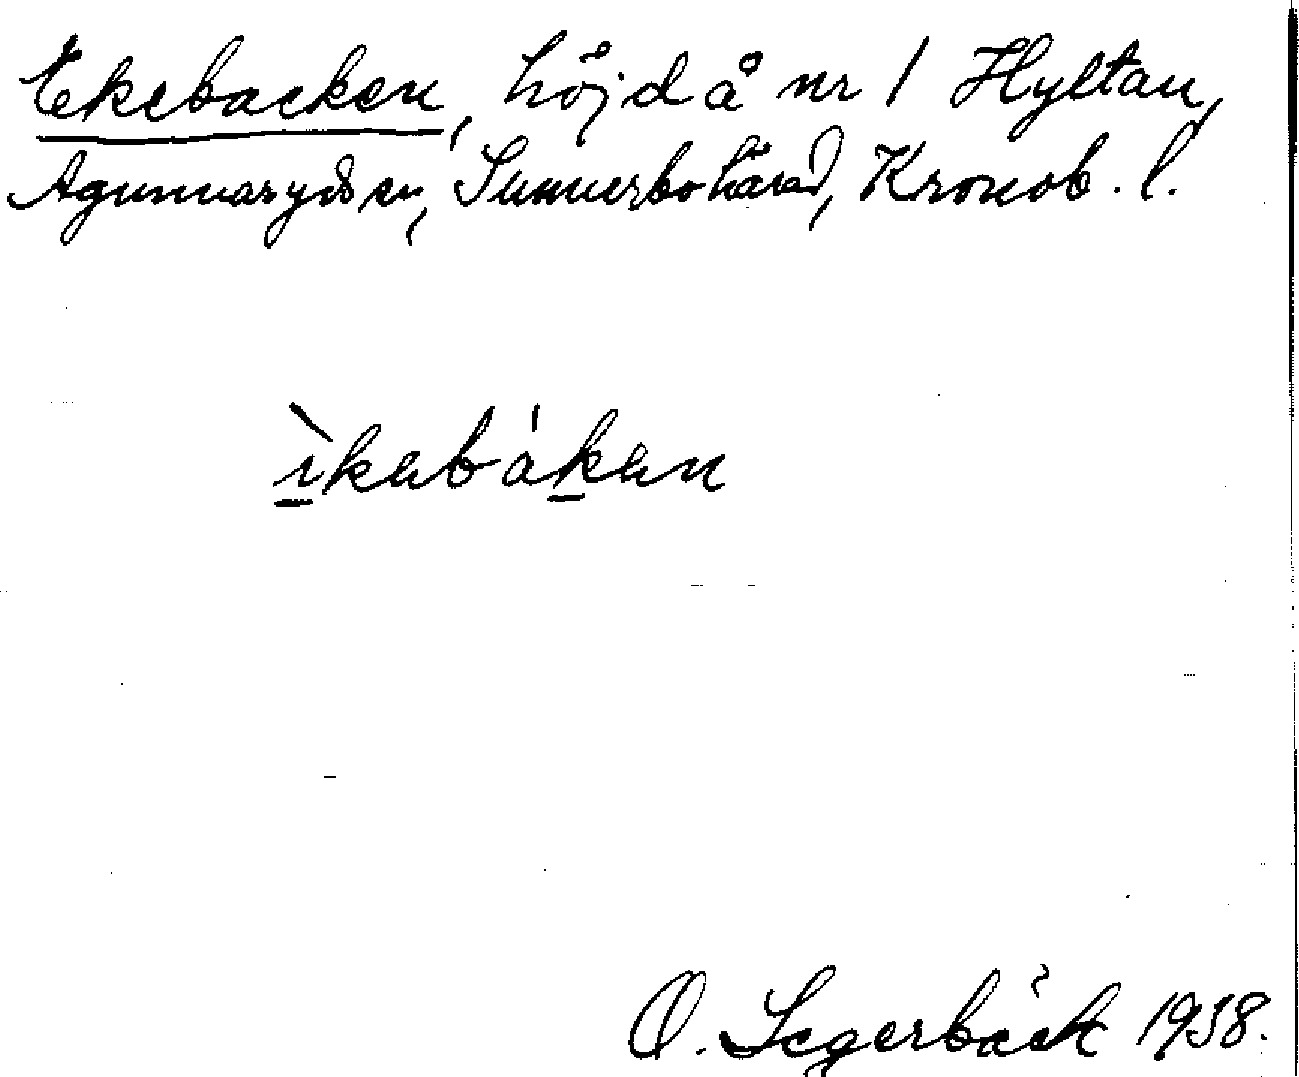 Ekebacken, höjd å nr 1 Hyltan,
Agunnaryds sn, Sunnerbo härad, Kronob. l.
ìkəbákən
O. Segerbäck 1938.